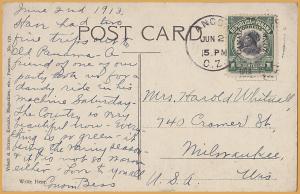 June 2nd 1913.
Have had two
fine trips over to
Old Panama. A
friend of one of our
party took us for a
dandy ride in his
machine Saturday.
The Country is very
beautiful here. Every-
thing is so green - it
being the rainy season
& it is not so warm
either. Love to you all
From Bess
POST CARD
ANCON
JUN 2
5 PM
C.Z.
Mrs. Harold Whitwell
740 Cramer St.,
Milwaukee,
Wis.
U.S.A.
Write Here